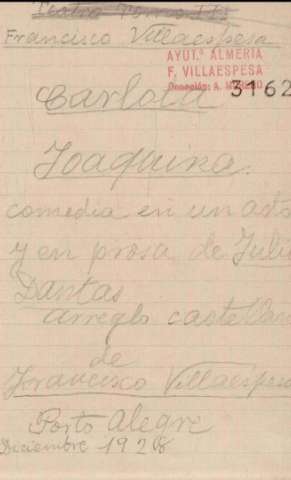 Francisco Villaespesa
AYUT.ª ALMERIA
F. VILLAESPESA
Donación: A. MORENO
3162
Carlota
Joaquina.
comedia en un acto
y en prosa de Julio
Dantas
arreglo castellano
de
Francisco Villaespesa
Porto Alegre
Diciembre 1928